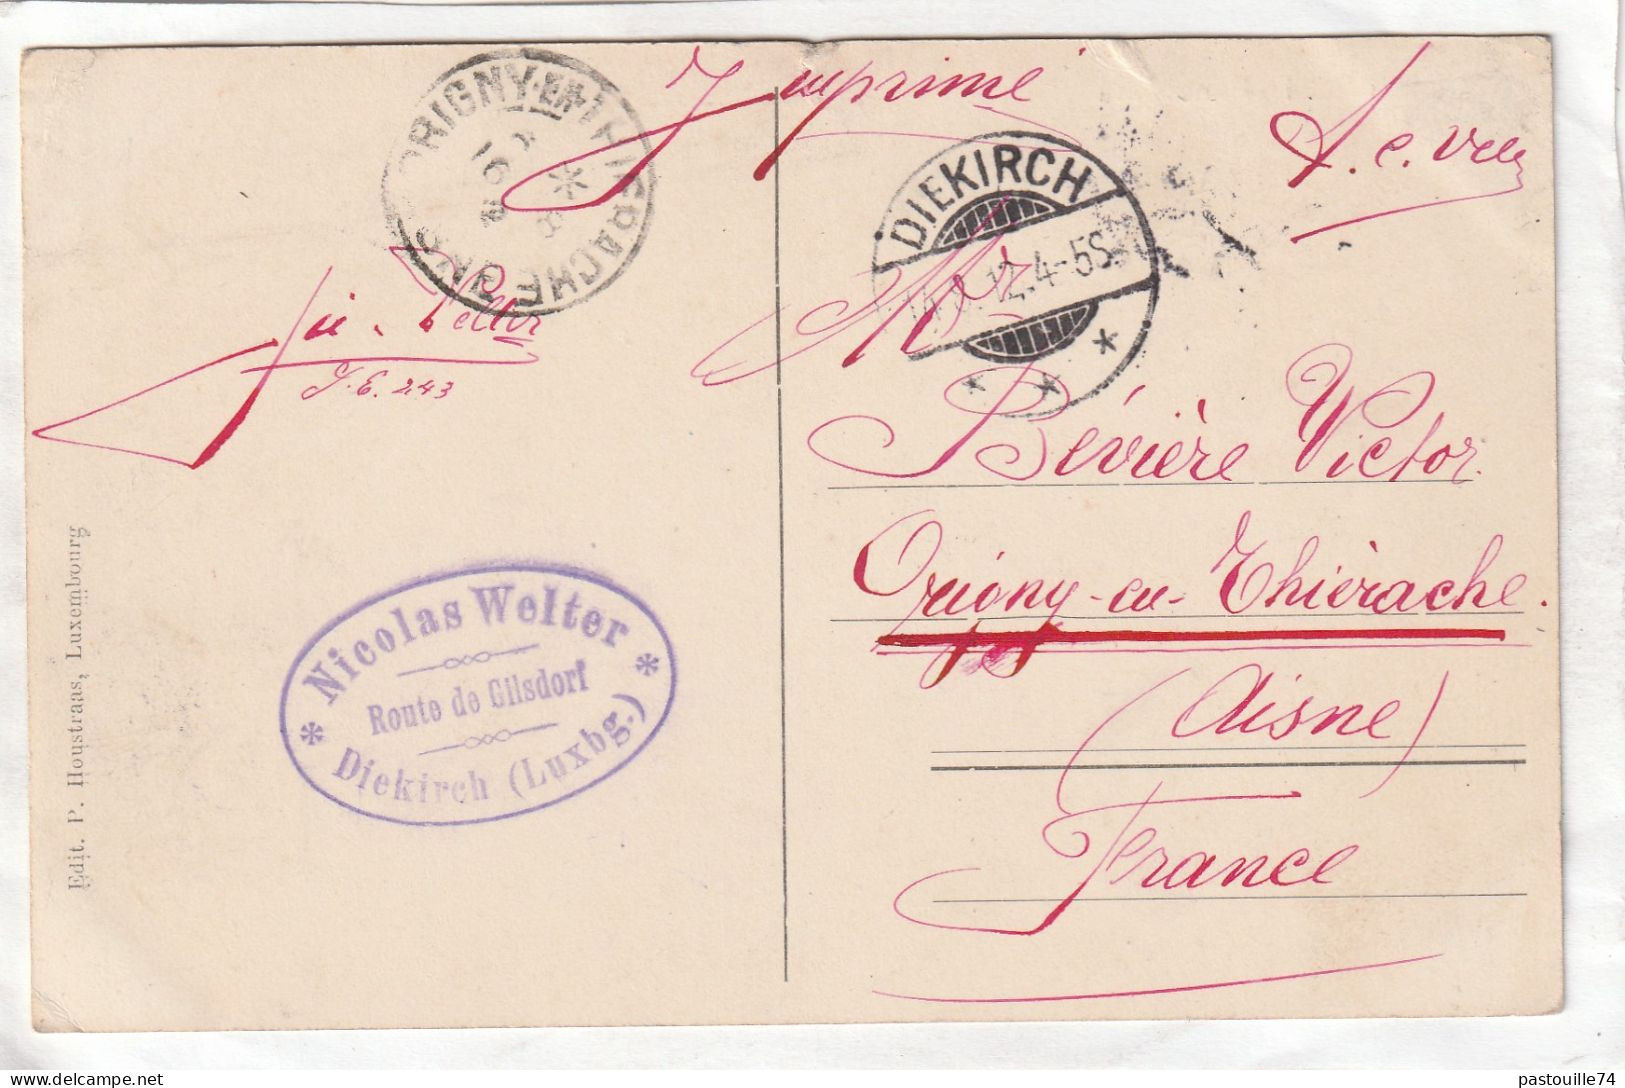 Imprimé
ORIGNY-EN-THIERACHE
AISNE
DIEKIRCH
12.4-5S
Welter
J.E. 243
Mr
Bévière Victor
Origny-en-Thiérache.
(Aisne)
France
Nicolas Welter
Route de Gilsdorf
Diekirch (Luxbg.)
Edit. P. Houstraas, Luxembourg
delcampe.net
pastouille74